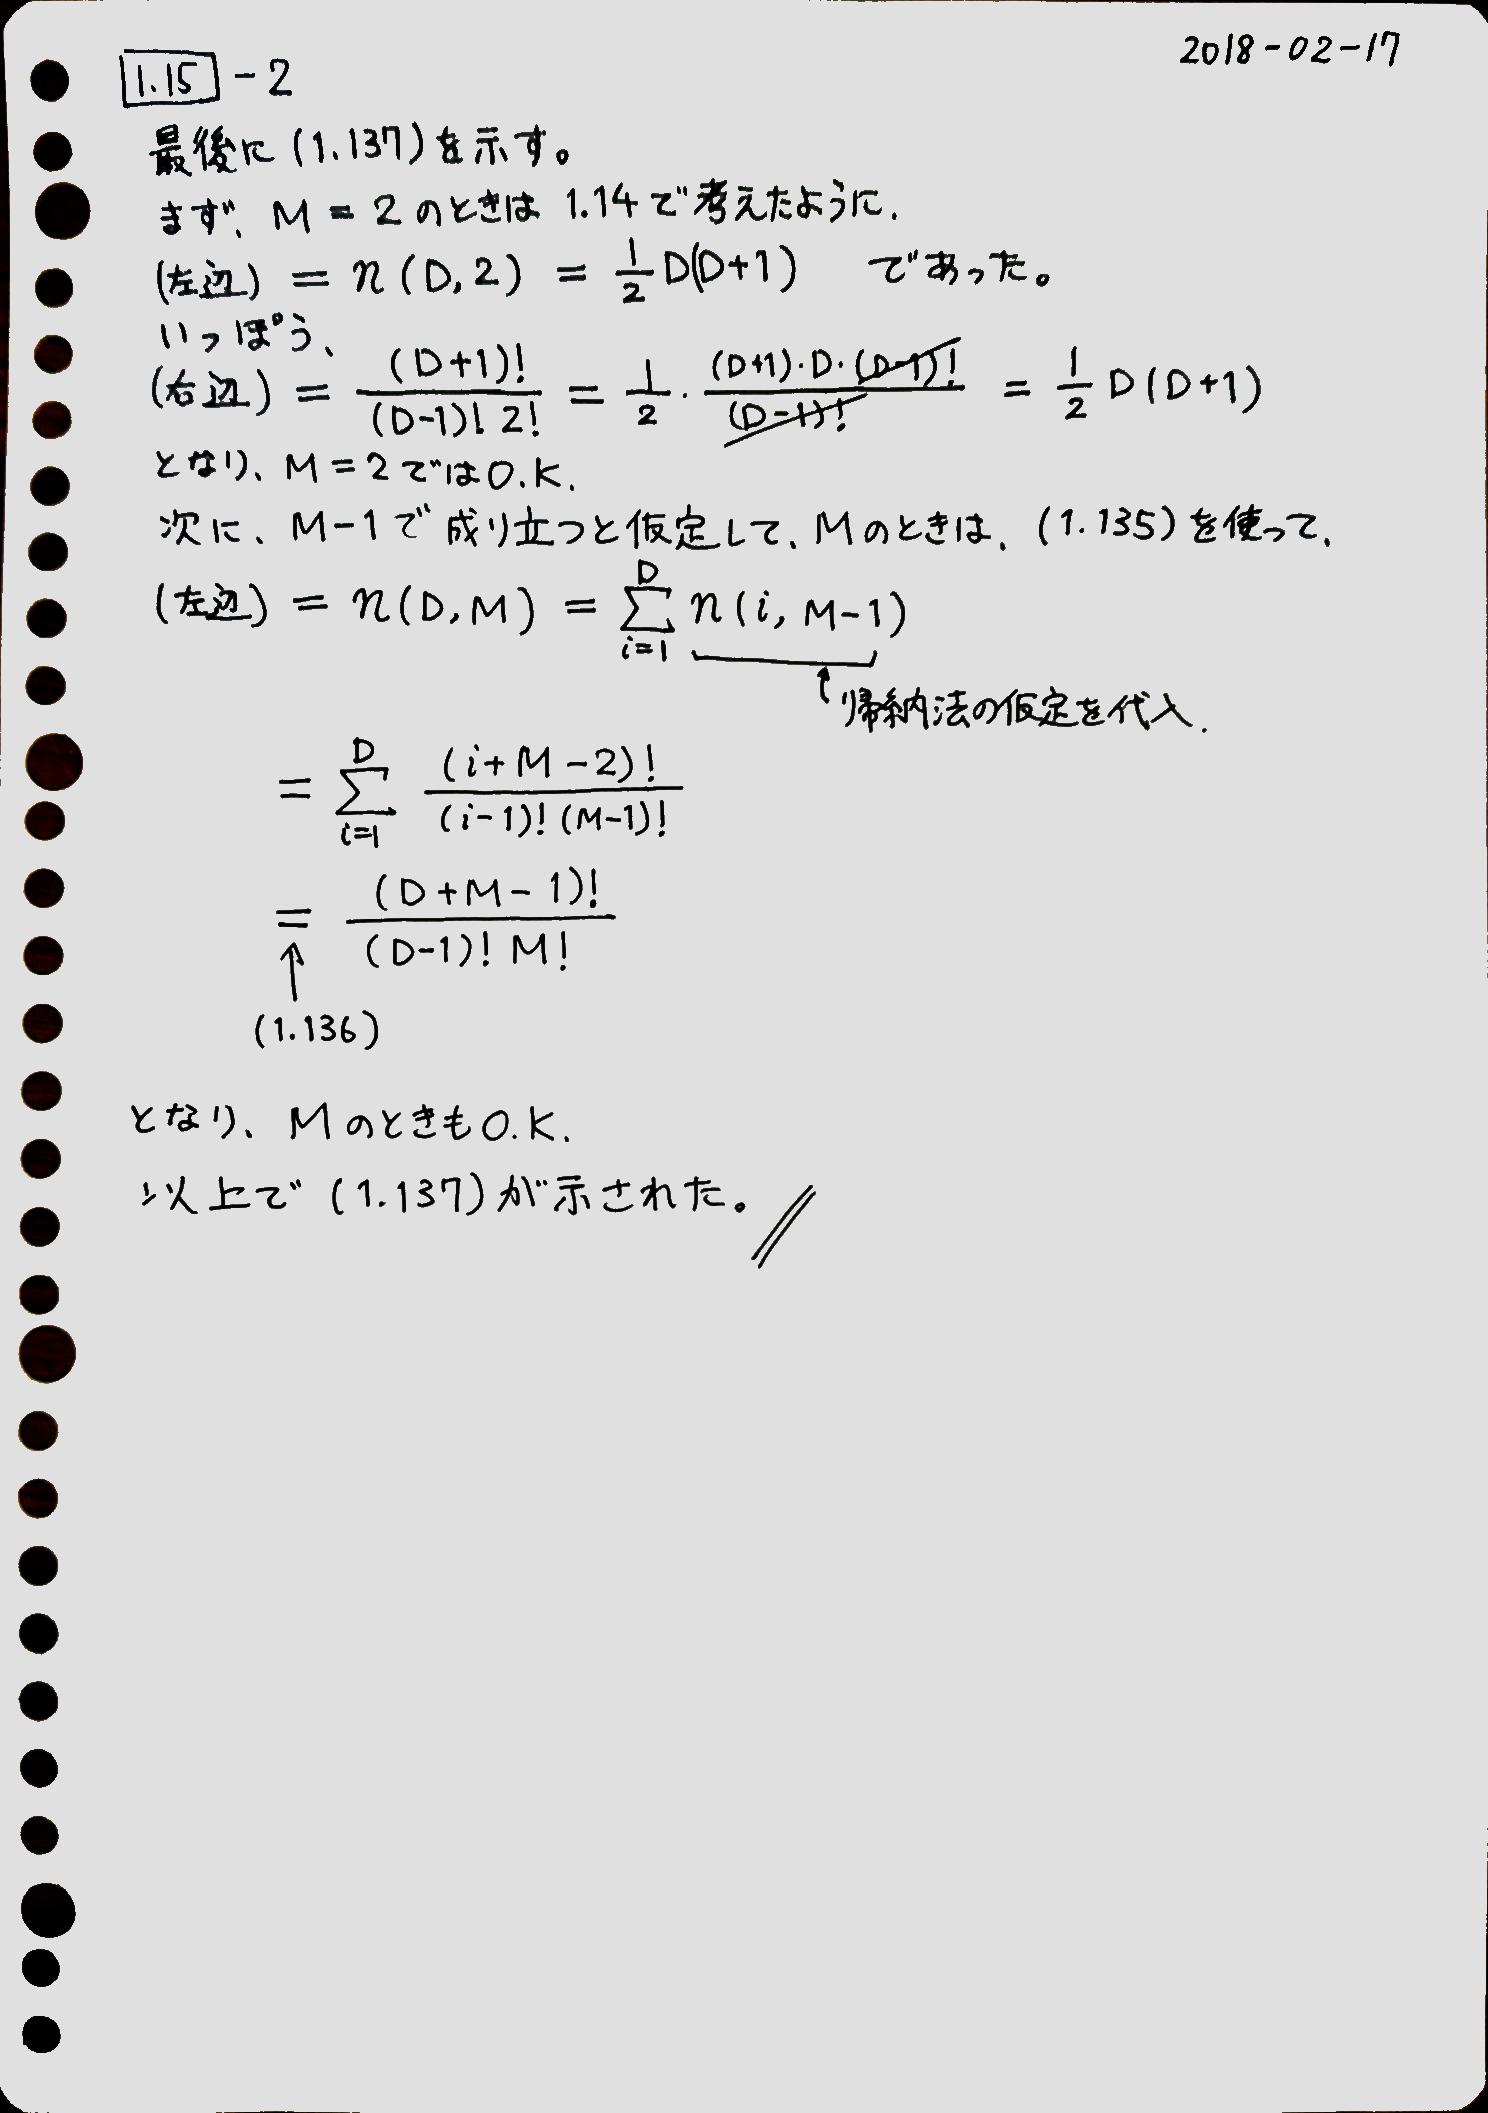 2018-02-17
1.15 -2
最後に (1.137)を示す。
まず、M = 2 のときは 1.14で考えたように、
(左辺) = n(D, 2) = 1/2 D(D+1) であった。
いっぽう、
(右辺) = (D+1)! / (D-1)! 2! = 1/2 · (D+1)·D·(D-1)! / (D-1)! = 1/2 D(D+1)
となり、M=2ではO.K.
次に、M-1で成り立つと仮定して、Mのときは、(1.135)を使って、
(左辺) = n(D, M) = Σ_{i=1}^{D} n(i, M-1)
↑帰納法の仮定を代入.
= Σ_{i=1}^{D} (i+M-2)! / (i-1)! (M-1)!
= (D+M-1)! / (D-1)! M!
↑
(1.136)
となり、MのときもO.K.
以上で (1.137)が示された。//